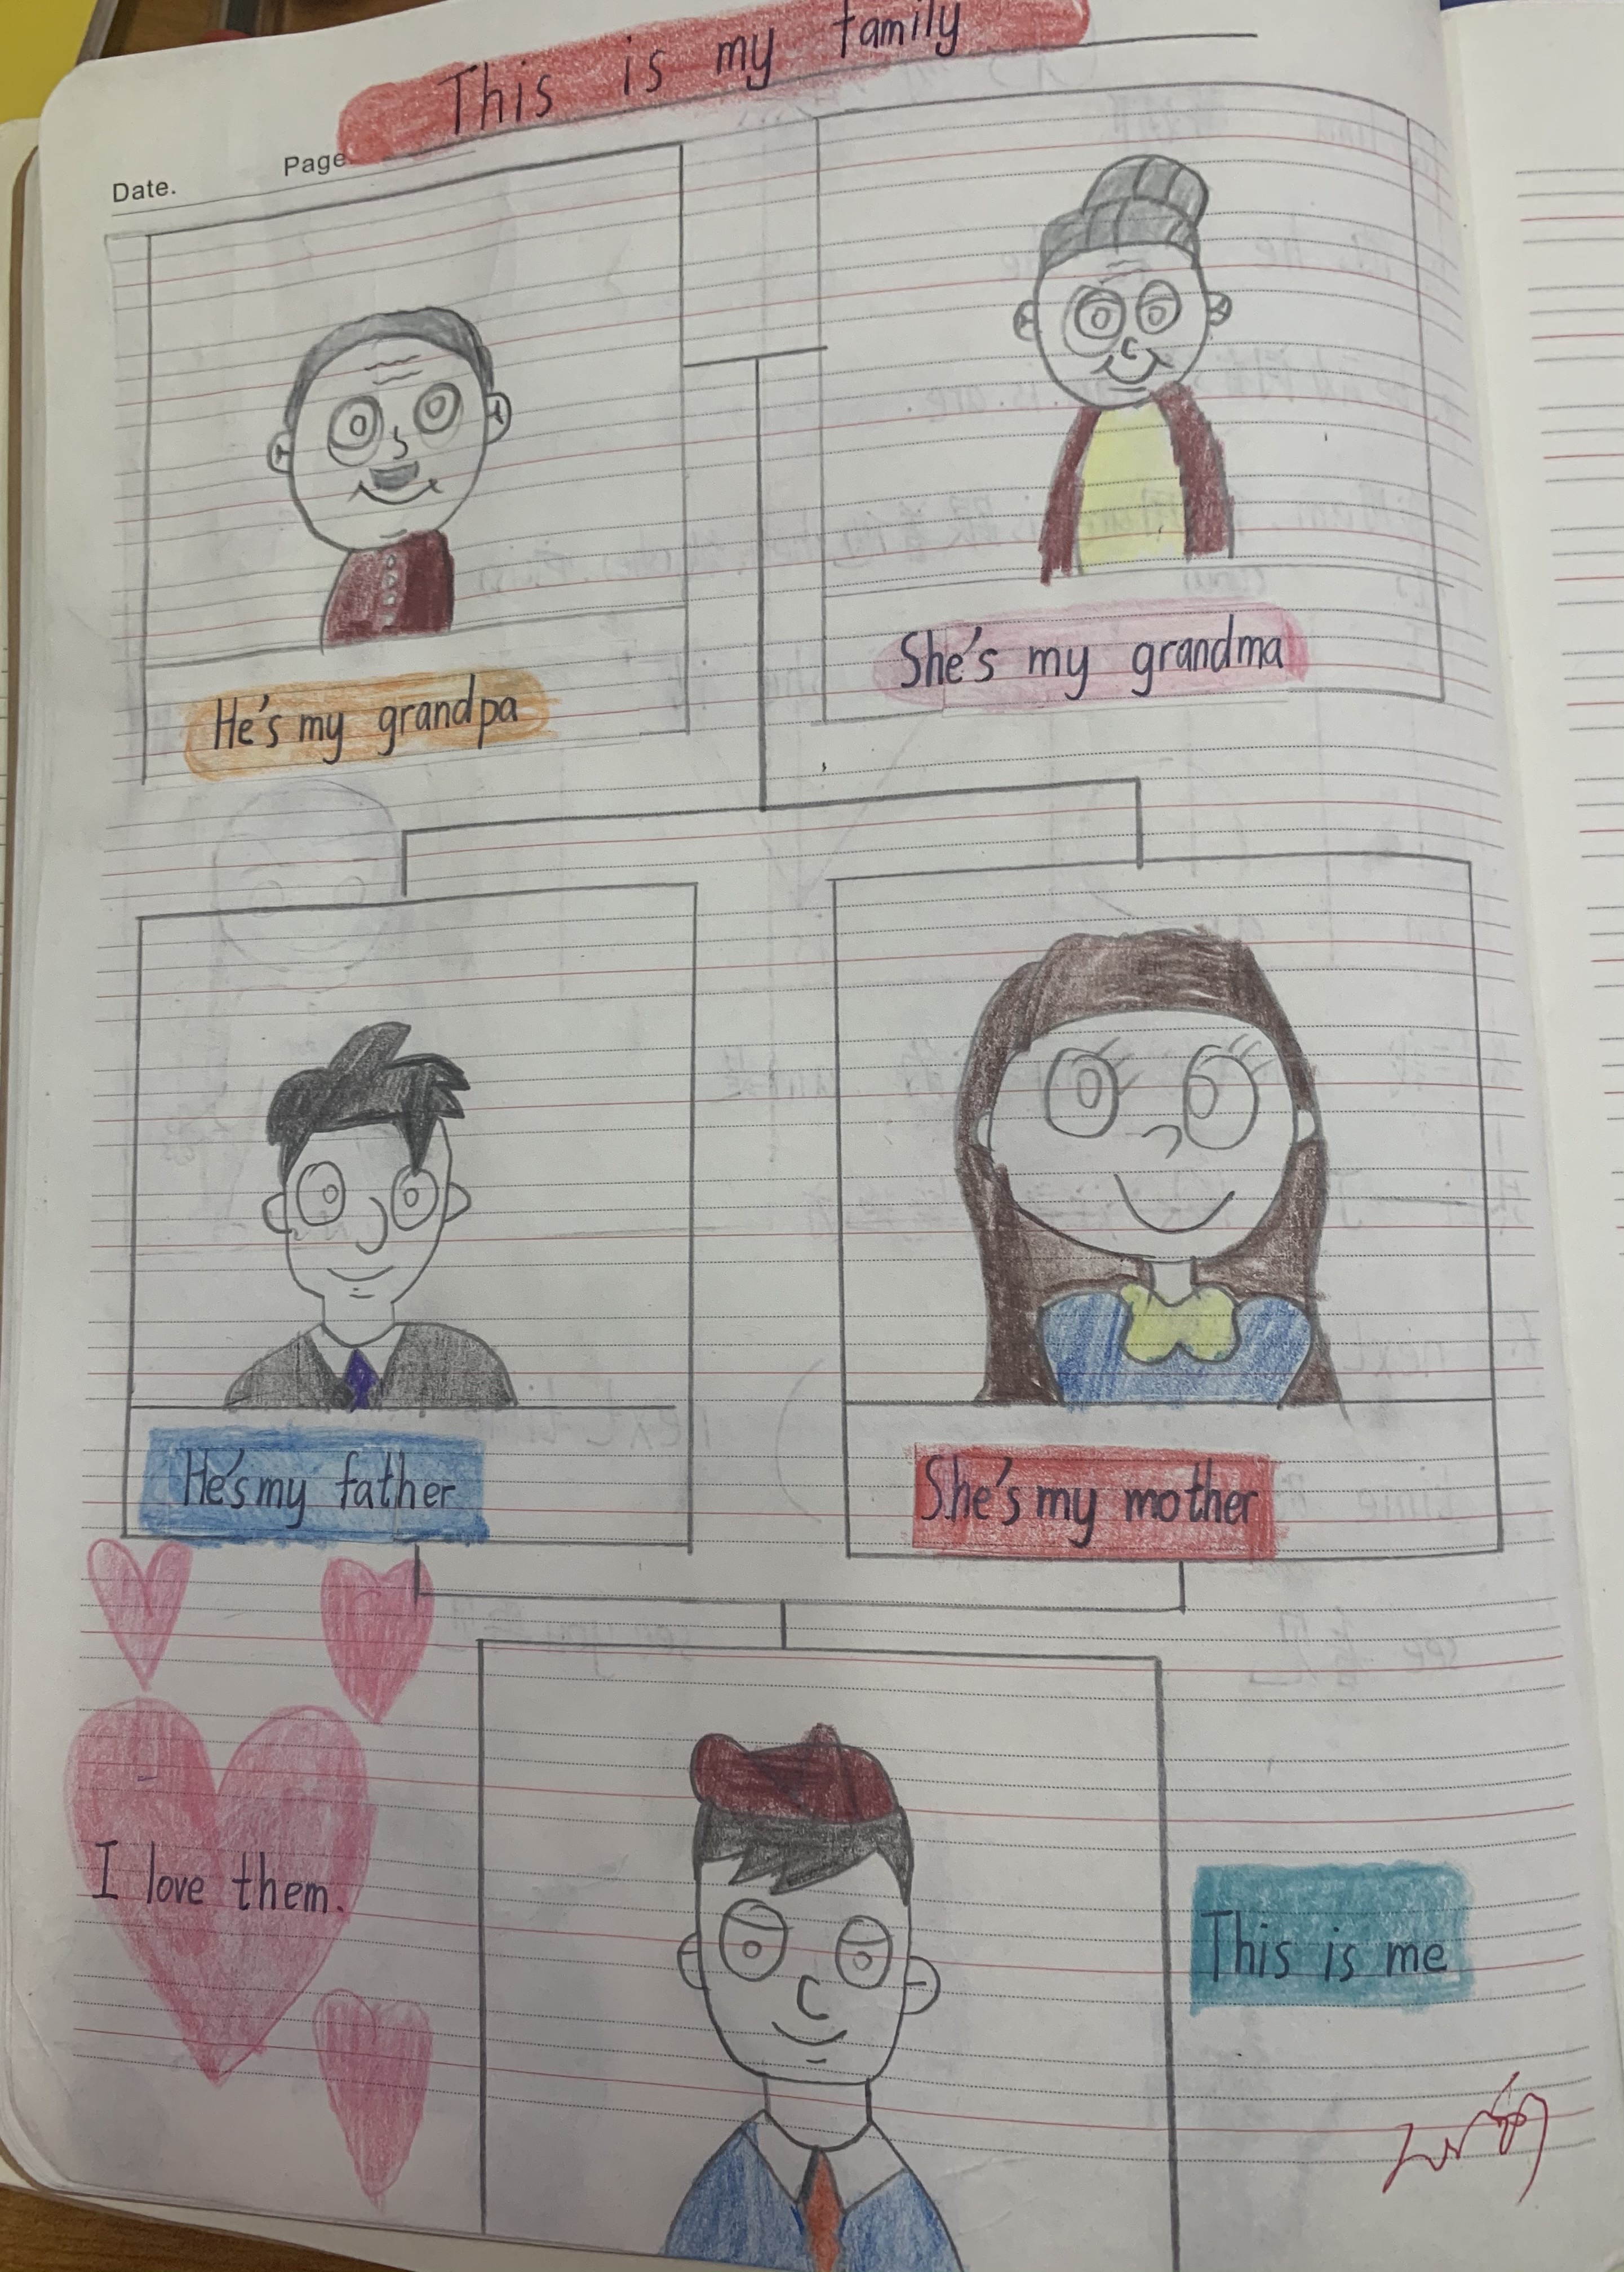 This is my family
Date.
Page
He's my grandpa
She's my grandma
He's my father
She's my mother
I love them.
This is me